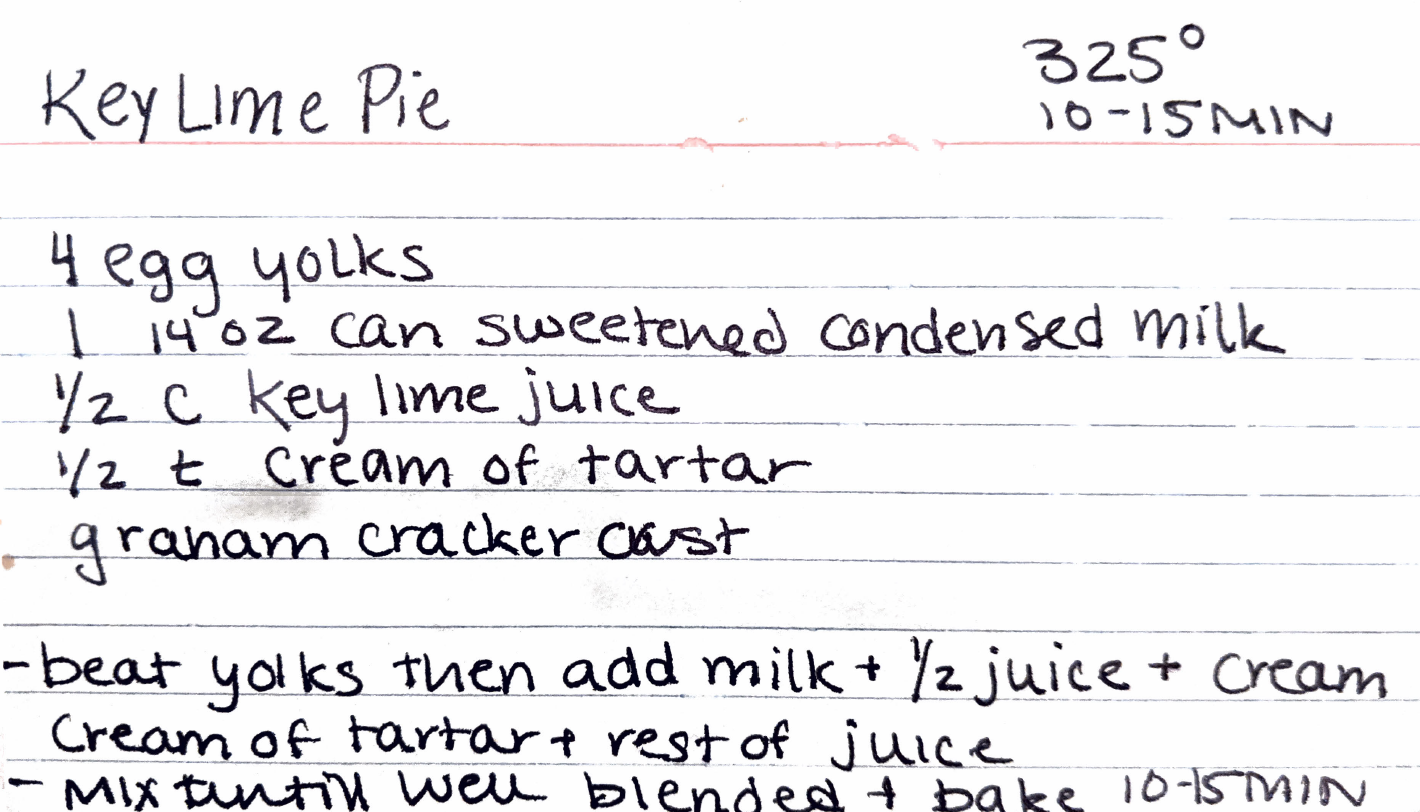 Key Lime Pie
325°
10-15 MIN
4 egg yolks
1 14 oz can sweetened condensed milk
1/2 c key lime juice
1/2 t cream of tartar
graham cracker crust
- beat yolks then add milk + 1/2 juice + cream
cream of tartar + rest of juice
- MIX untill well blended + bake 10-15 MIN